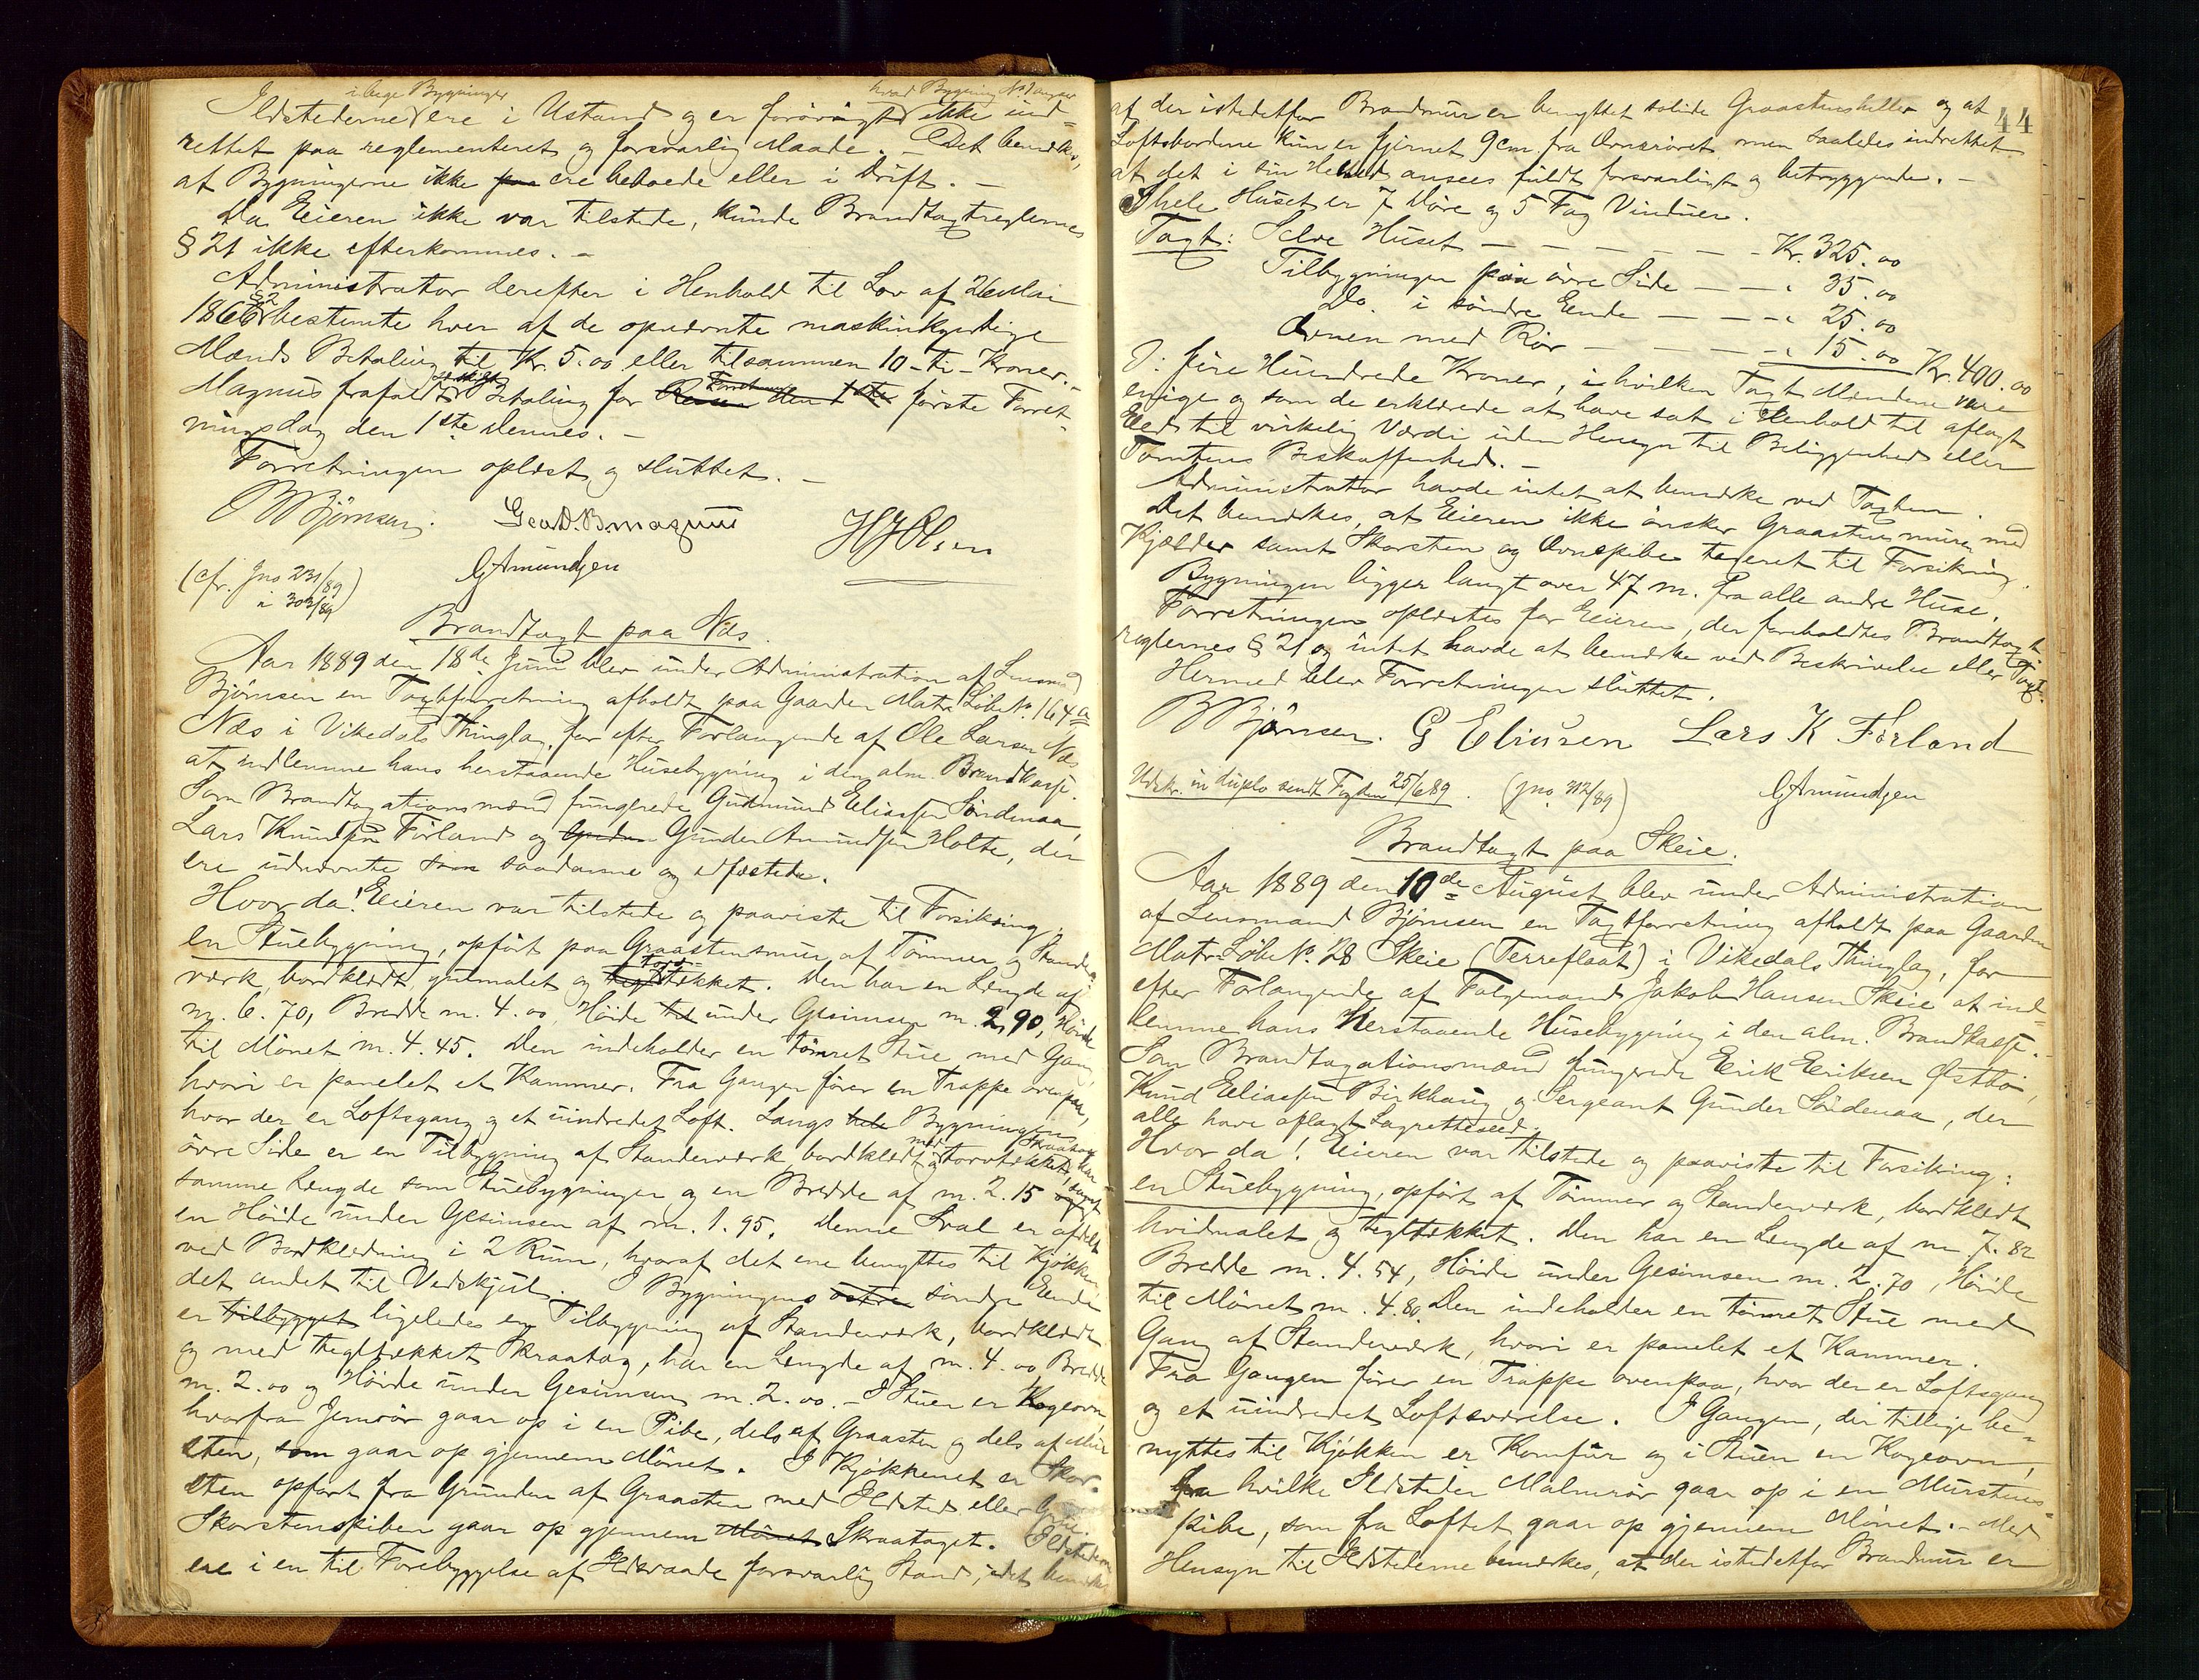 i begge Bygninger hvad Bygning No 1 angaar
Ildstederne ere i Ustand og er forövrigt ikke ind-
rettet paa reglementeret og forsvarlig Maade. – Det bemerkes,
at Bygningerne ikke paa ere beboede eller i Drift. –
Da Eieren ikke var tilstede, kunde Brandtaxtreglernes
§ 21 ikke efterkommes. –
Administrator derefter i Henhold til Lov af 26 Mai
1866 § 2 bestemte hver af de opnævnte maskinkyndige
Mænds Betaling til Kr. 5.00 eller tilsammen 10 – ti – Kroner. –
Magnus frafaldt Betaling for Reisen den 1ste første Forret-
ningsdag den 1ste dennes. –
Forretningen oplæst og sluttet. –
B Bjørnsen. Geo D. B. Magnus H J Olsen
G Amundsen
(cfr. Jno 231/89
i 303/89)
Brandtaxt paa Næs.
Aar 1889 den 18de Juni blev under Administration af Lensmand
Bjørnsen en Taxtforretning afholdt paa Gaarden Matr. Löbe No. 164a
Næs i Vikedals Thinglag, for efter Forlangende af Ole Larsen Næs
at indlemme hans herstaaende Husebygning i den alm. Brandkasse.
Som Brandtaxationsmænd fungerede Gudmund Eliassen Söndenaa,
Lars Knudsen Førland og Gunder Gunder Amundsen Holte, der
ere udnævnte som saadanne og edfæstede.
Hvorda! Eieren var tilstede og paaviste til Forsikring:
en Stuebygning, opført paa Graastensmur af Tömmer og Stander-
værk, bordklædt, gulmalet og tegl torvtækket. Den har en Længde af
m. 6.70, Bredde m. 4.00, Höide til under Gesimsen m. 2,90, Höide
til Mönet m. 4.45. Den indeholder en tömret Stue med Gang,
hvori er panelet et Kammer. Fra Gangen förer en Trappe ovenpaa,
hvor der er Loftsgang og et uindredet Loft. Langs hele Bygningens
övre Side er en Tilbygning af Standerværk, bordklædt og med torvtækket Skraatag, har
samme Længde som Stuebygningen og en Bredde af m. 2.15 og samt
en Höide under Gesimsen af m. 1.95. Denne Sval er afdelt
ved Bordklædning i 2 Rum, hvoraf det ene benyttes til Kjökken,
det andet til Vedskjul. I Bygningens östre söndre Ende
er tilbygget ligeledes en Tilbygning af Standerværk, bordklædt
og med tegltækket Skraatag, har en Længde af m. 4.00, Bredde
m. 2.00 og Höide under Gesimsen m. 2.00. – I Stuen er Kogeovn,
hvorfra Jernrör gaar op i en Pibe, dels af Graasten og dels af Mur-
sten, som gaar op gjennem Mönet. I Kjökkenet er Skor-
sten opfört fra Grunden af Graasten med Ildsted eller Grue.
Skorstenspiben gaar op gjennem Mönet Skraataget. Ildstederne
ere i en til Forebyggelse af Ildsvaade forsvarlig Stand, idet bemærkes
44
af der istedetfor Brandmur er benyttet solide Graastensheller og at
Loftsbordene kun er fjernet 9 cm fra Ovnsröret men saaledes indrettet
at det i sin Helhed ansees fuldt forsvarligt og betryggende. –
I hele Huset er 7 Döre og 5 Fag Vinduer.
Taxt: Selve Huset – – – – – – Kr. 325.00
Tilbygningen paa övre Side – – " 35.00
Do. i söndre Ende – – – " 25.00
Ovnen med Rör – – – – " 15.00 Kr. 400.00
D: fire Hundrede Kroner, i hvilken Taxt Mændene vare
enige og som de erklærede at have sat i Henhold til aflagt
Eed til virkelig Værdi uden Hensyn til Beliggenhed eller
Tomtens Beskaffenhed. –
Administrator havde intet at bemærke ved Taxten.
Det bemærkes, at Eieren ikke önsker Graastensmuren med
Kjælder samt Skorsten og Ovnspibe taxeret til Forsikring.
Bygningen ligger langt over 47 m. fra alle andre Huse.
Forretningen oplæstes for Eieren, der foreholdtes Brandtaxt-
reglernes § 21 og intet havde at bemærke ved Beskrivelse eller Taxt.
Hermed blev Forretningen sluttet.
B Bjørnsen. G Eliasen Lars K Førland
Udskr. in duplo sendt Fogden 25/6 89. (Jno. 312/89) G Amundsen
Brandtaxt paa Skeie.
Aar 1889 den 10de August blev under Administration
af Lensmand Bjørnsen en Taxtforretning afholdt paa Gaarden
Matr. Löbe No. 28 Skeie (Terreflaat) i Vikedals Thinglag, for
efter Forlangende af Folgemand Jakob Hansen Skeie at ind-
lemme hans herstaaende Husebygning i den alm. Brandkasse. –
Som Brandtaxationsmænd fungerede Erik Eriksen Østbö,
Knud Eliassen Birkhaug og Sergeant Gunder Söndenaa, der
alle have aflagt Lagretteseed.
Hvor da! Eieren var tilstede og paaviste til Forsikring:
en Stuebygning, opfört af Tömmer og Standerværk, bordklædt
hvidmalet og tegltækket. Den har en Længde af m. 7.82
Bredde m. 4.54, Höide under Gesimsen m. 2.70, Höide
til Mönet m. 4.80. Den indeholder en tömret Stue med
Gang af Standerværk, hvori er panelet et Kammer.
Fra Gangen förer en Trappe ovenpaa, hvor der er Loftsgang
og et uindredet Loftsværelse. I Gangen, der tillige be-
nyttes til Kjökken er Komfur og i Stuen en Kogeovn,
fra hvilke Ildsteder Malmrör gaar op i en Murstens-
pibe, som fra Loftet gaar op gjennem Mönet. – Med
Hensyn til Ildstederne bemærkes, at der istedetfor Brandmur er